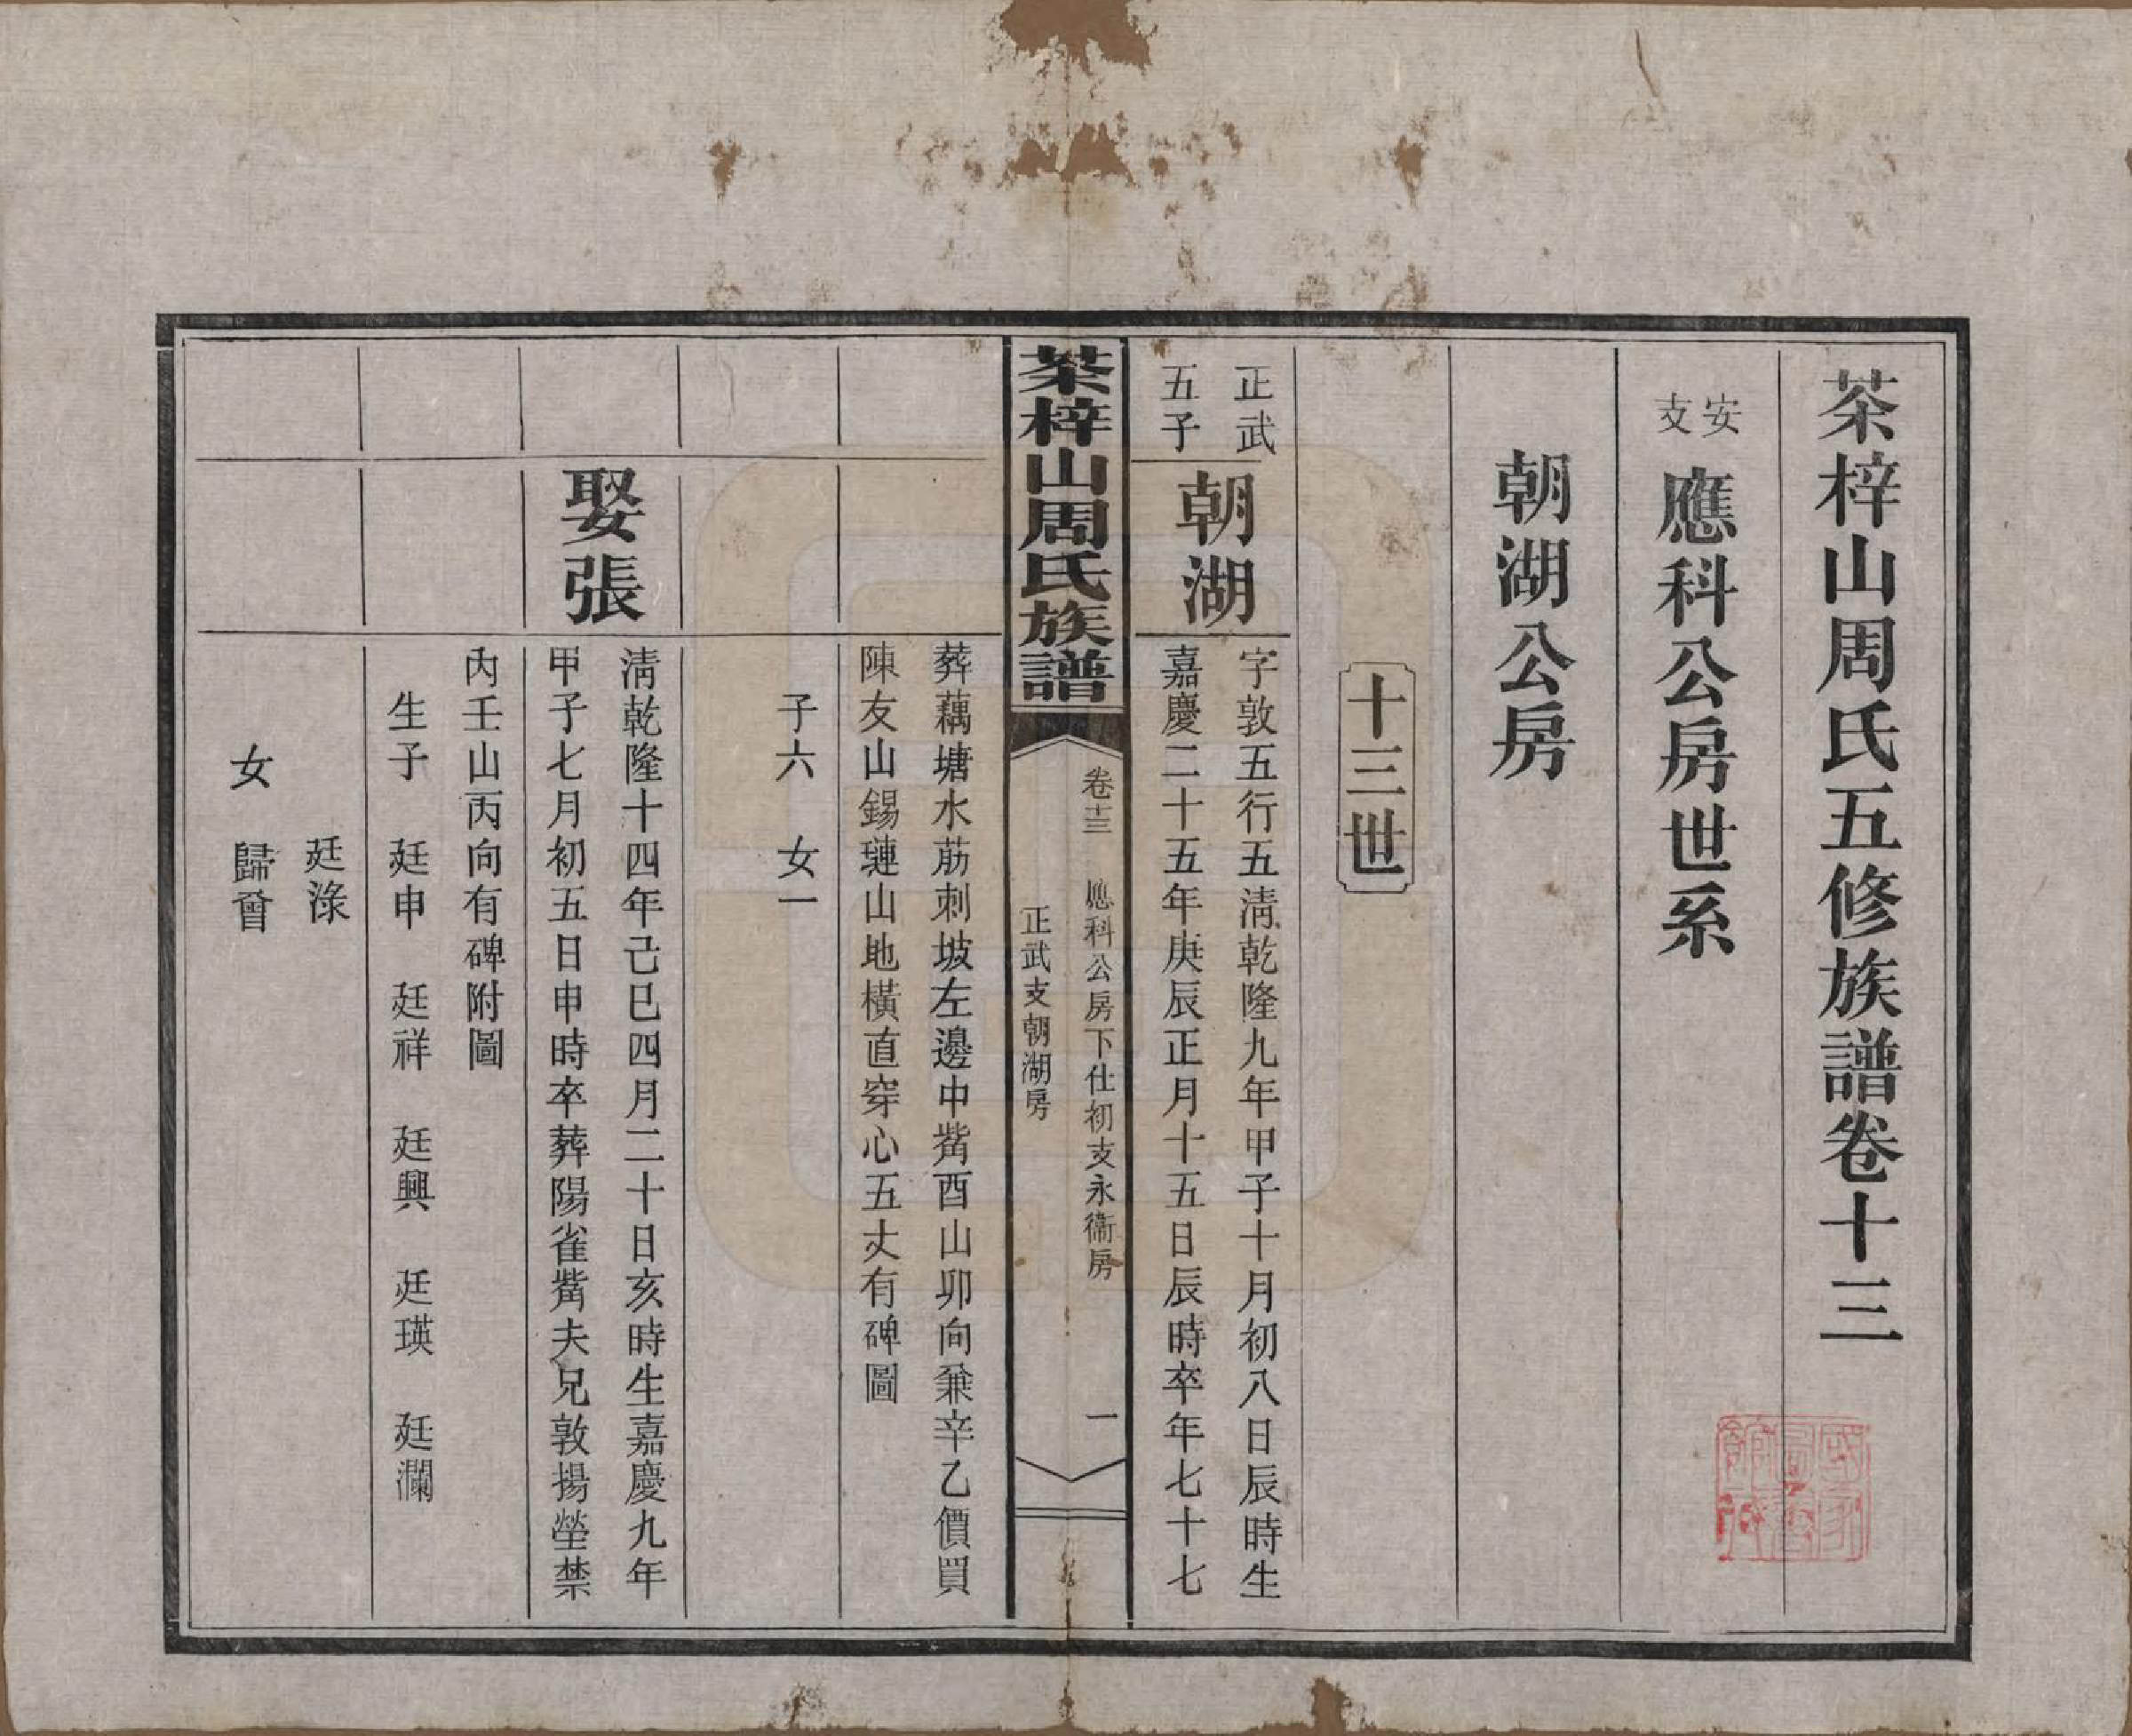 茶梓山周氏五修族譜卷十三
安支
應科公房世系
朝湖公房
十三世
正武
五子
朝湖
字敦五行五淸乾隆九年甲子十月初八日辰時生
嘉慶二十五年庚辰正月十五日辰時卒年七十七
茶梓山周氏族譜
卷十三 應科公房下仕初支永衞房 一
正武支朝湖房
葬藕塘水荕刺坡左邊中觜酉山卯向兼辛乙價買
陳友山錫璉山地橫直穿心五丈有碑圖
子六 女一
娶張
淸乾隆十四年己巳四月二十日亥時生嘉慶九年
甲子七月初五日申時卒葬陽雀觜夫兄敦揚塋禁
內壬山丙向有碑附圖
生子 廷申 廷祥 廷興 廷瑛 廷瀾
廷淥
女 歸曾
國家圖書館藏